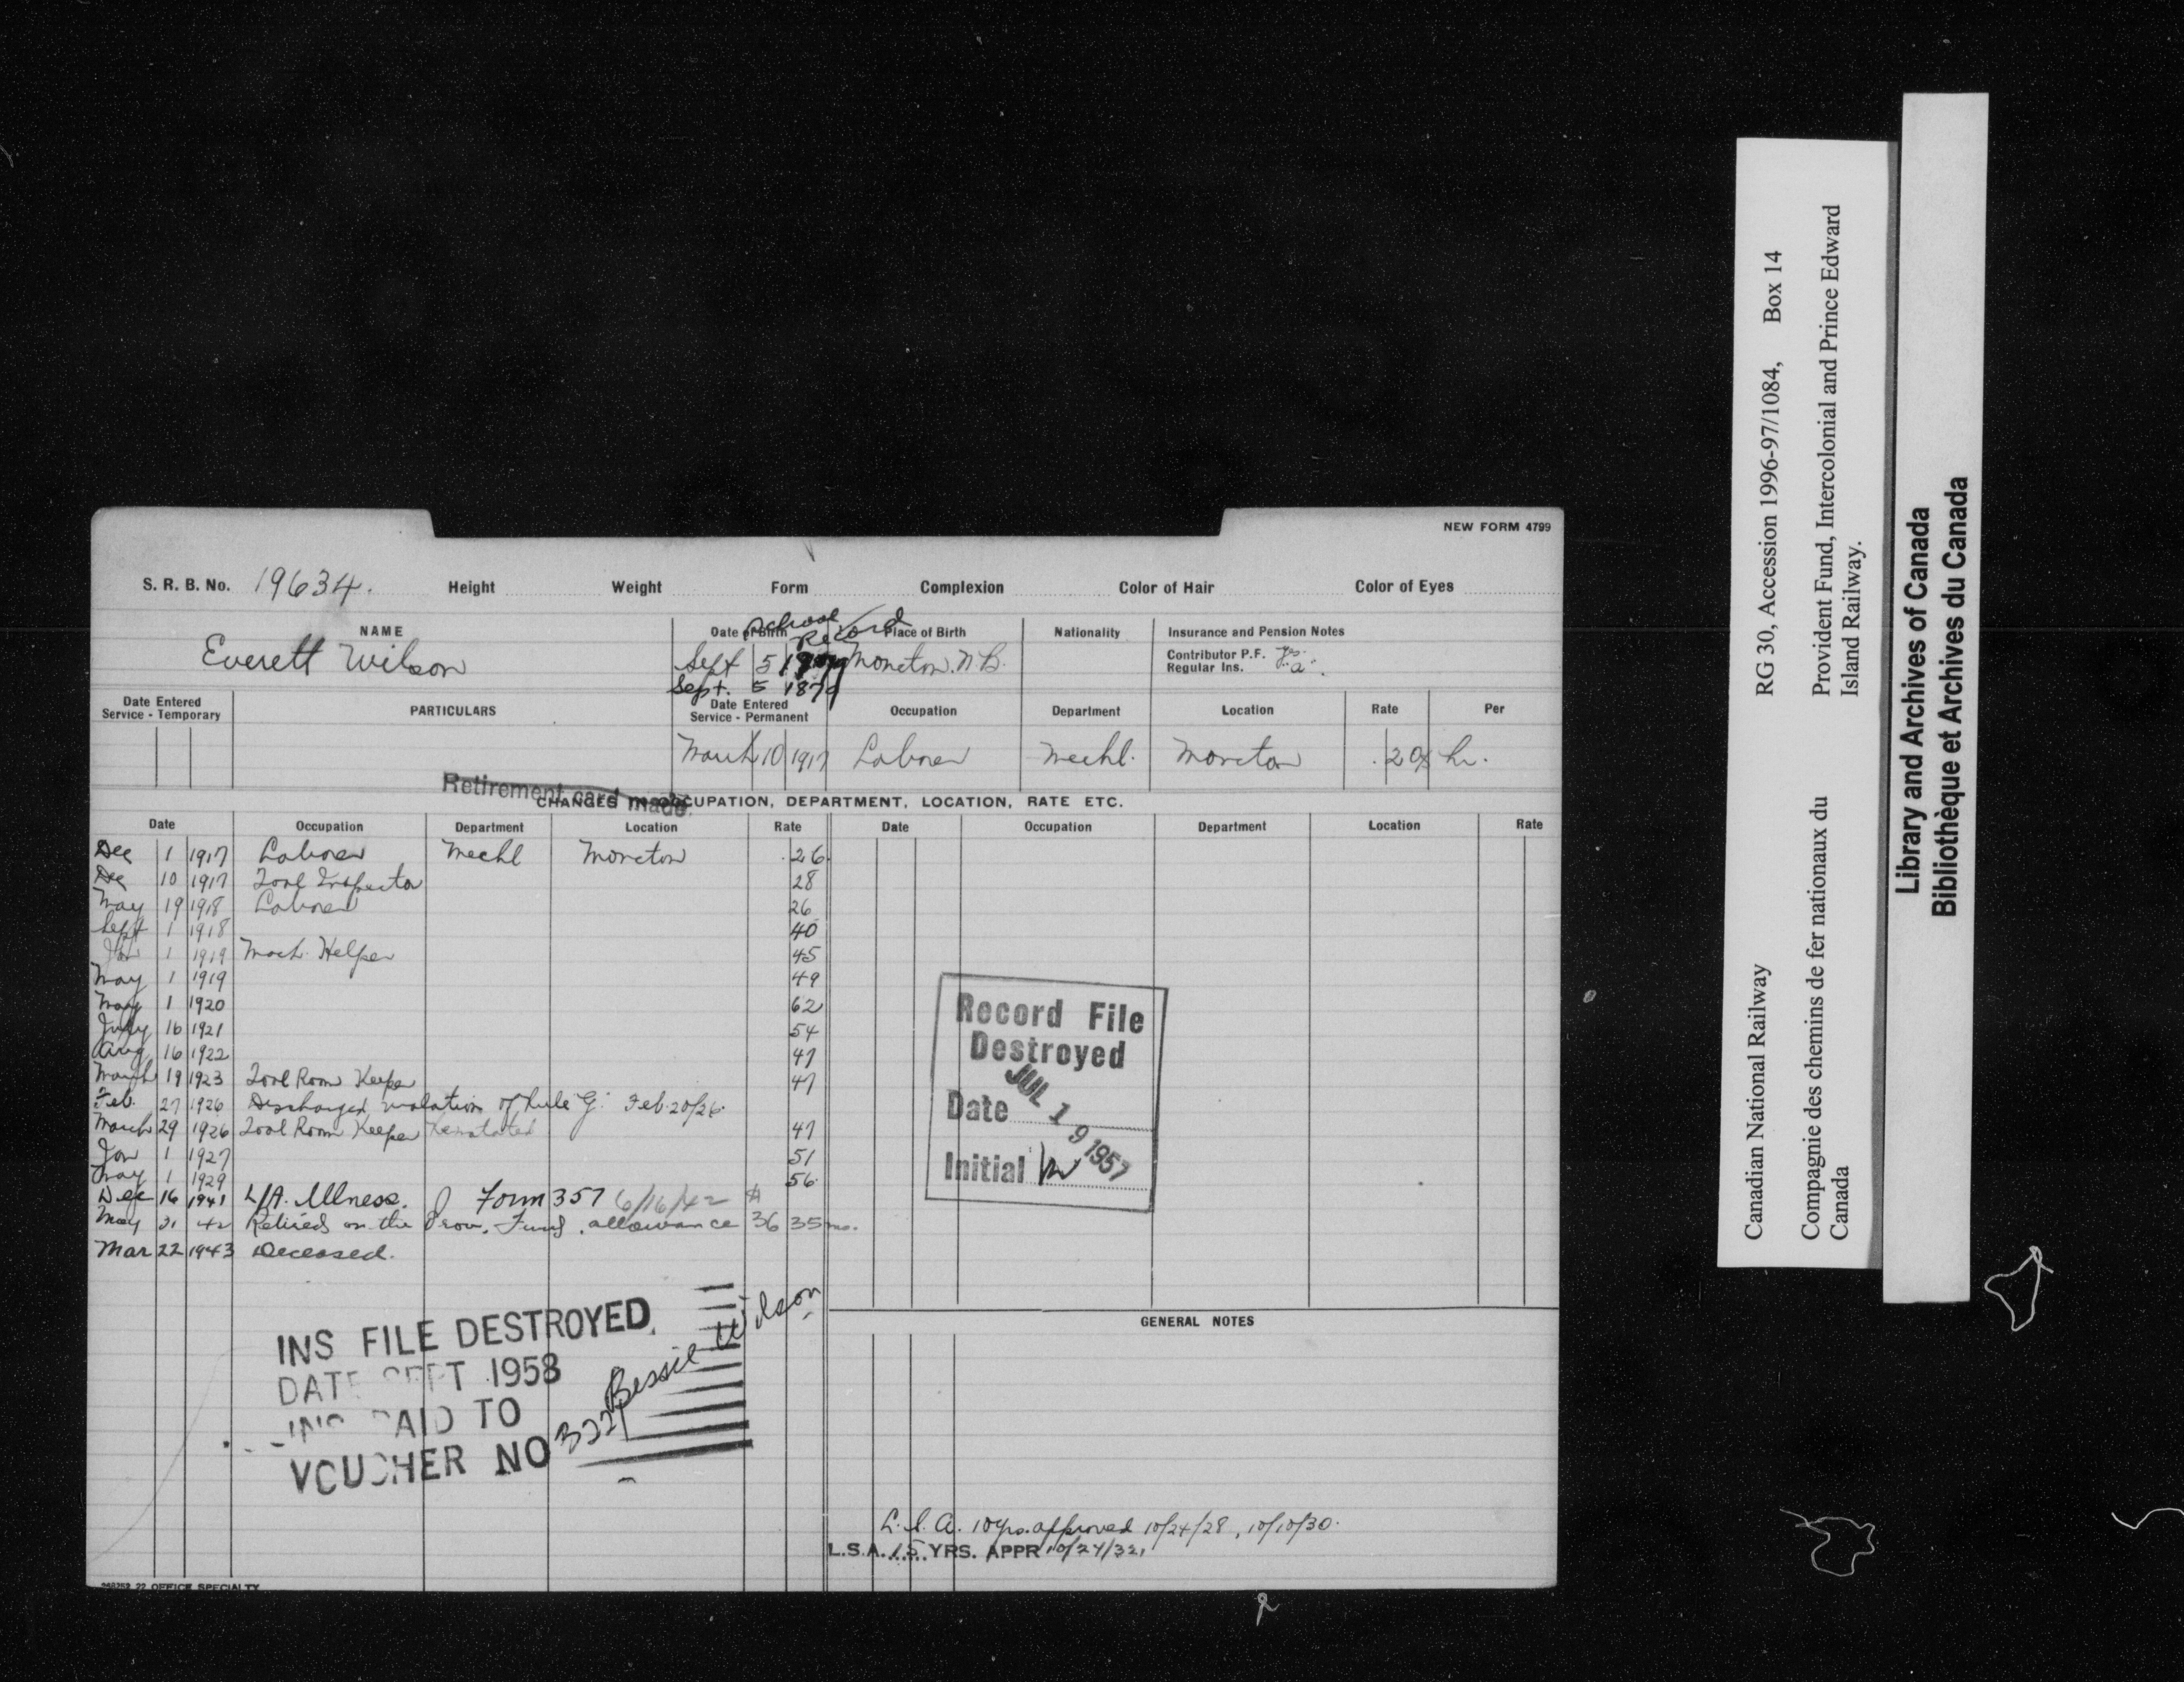 NEW FORM 4799
S. R. B. No. 19634. Height Weight Form Complexion Color of Hair Color of Eyes
School Record
NAME Date of Birth Place of Birth Nationality Insurance and Pension Notes
Everett Wilson Sept 5 Moncton N B. Contributor P.F. Yes
Regular Ins. "a".
Sept. 5 1879
Date Entered Service - Temporary PARTICULARS Date Entered Service - Permanent Occupation Department Location Rate Per
March 10 1917 Laborer Mechl. Moncton hr.
Retirement card made.
CHANGES IN OCCUPATION, DEPARTMENT, LOCATION, RATE ETC.
Date Occupation Department Location Rate Date Occupation Department Location Rate
Dec 1 1917 Laborer Mechl Moncton .26
Dec 10 1917 Tool Inspector 28
May 19 1918 Laborer 26
Sept 1 1918 40
Jan 1 1919 Mach. Helper 45
May 1 1919 49
May 1 1920 62
July 16 1921 54
Aug 16 1922 47
March 19 1923 Tool Room Keeper 47
Feb. 27 1926 Discharged violation of Rule "G" Feb. 20/26.
March 29 1926 Tool Room Keeper Reinstated 47
Jan 1 1927 51
May 1 1929 56
Dec 16 1941 L/A. Illness. Form 357 6/16/42 $
May 31 42 Retired on the Prov. Fund. allowance 36 35 mo.
Mar 22 1943 Deceased.
Record File
Destroyed
Date JUL 19 1957
Initial
INS FILE DESTROYED
DATE SEPT 1958
INS PAID TO Bessie Wilson
VOUCHER NO 3221
GENERAL NOTES
L.S.A. 10 yrs. approved 10/24/28, 10/10/30.
L.S.A. 15 YRS. APPR 10/24/32,
22 OFFICE SPECIALTY
Canadian National Railway RG 30, Accession 1996-97/1084, Box 14
Compagnie des chemins de fer nationaux du Provident Fund, Intercolonial and Prince Edward
Canada Island Railway.
Library and Archives of Canada
Bibliothèque et Archives du Canada